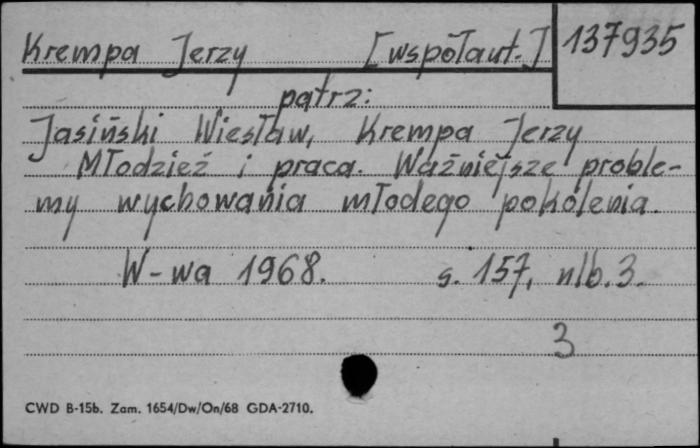 Krempa Jerzy [współaut.] 137935
patrz:
Jasiński Wiesław, Krempa Jerzy
Młodzież i praca. Ważniejsze proble-
my wychowania młodego pokolenia.
W-wa 1968. s. 157, nlb. 3.
3
CWD B-15b. Zam. 1654/Dw/On/68 GDA-2710.